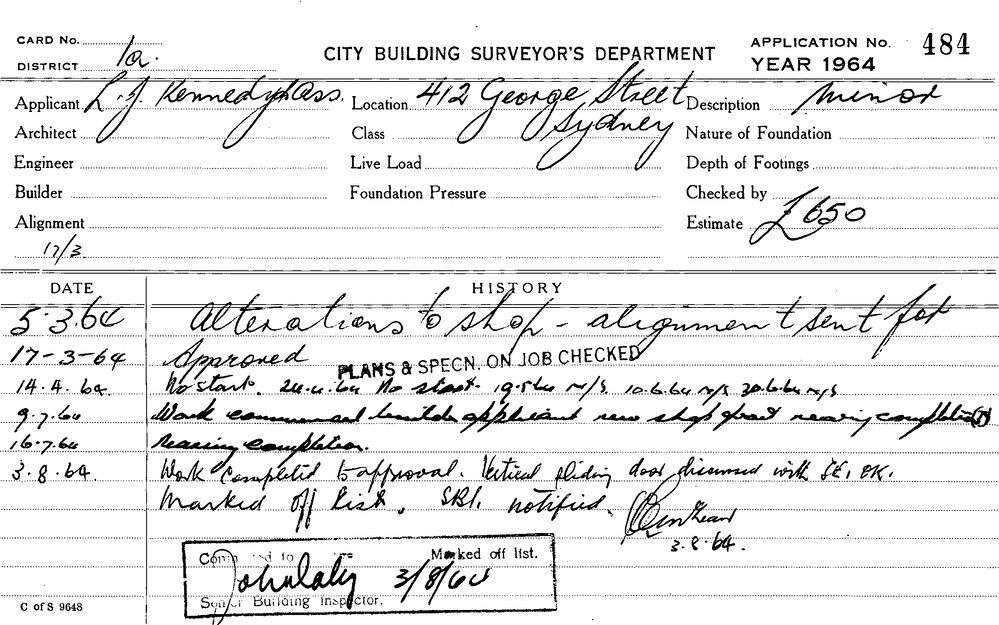 CARD No.
DISTRICT 1a.
CITY BUILDING SURVEYOR'S DEPARTMENT
APPLICATION No. 484
YEAR 1964
Applicant L. J. Kennedy & Ass. Location 412 George Street Sydney Description Minor
Architect Class Nature of Foundation
Engineer Live Load Depth of Footings
Builder Foundation Pressure Checked by
Alignment Estimate £650
17/3.
DATE HISTORY
5.3.64 Alterations to shop - alignment sent for
17-3-64 Approved PLANS & SPECN. ON JOB CHECKED
14.4.64 No start. 24.4.64 No start. 19.5.64 N/S. 10.6.64 N/S 30.6.64 N/S
9.7.64 Work commenced applicant new shop front nearing completion
16.7.64 Nearing completion.
3.8.64. Work completed to approval. Vertical sliding door discussed with OK.
Marked off list. notified.
3.8.64.
to Marked off list.
John Daly 3/8/64
Senior Building Inspector.
C of S 9648